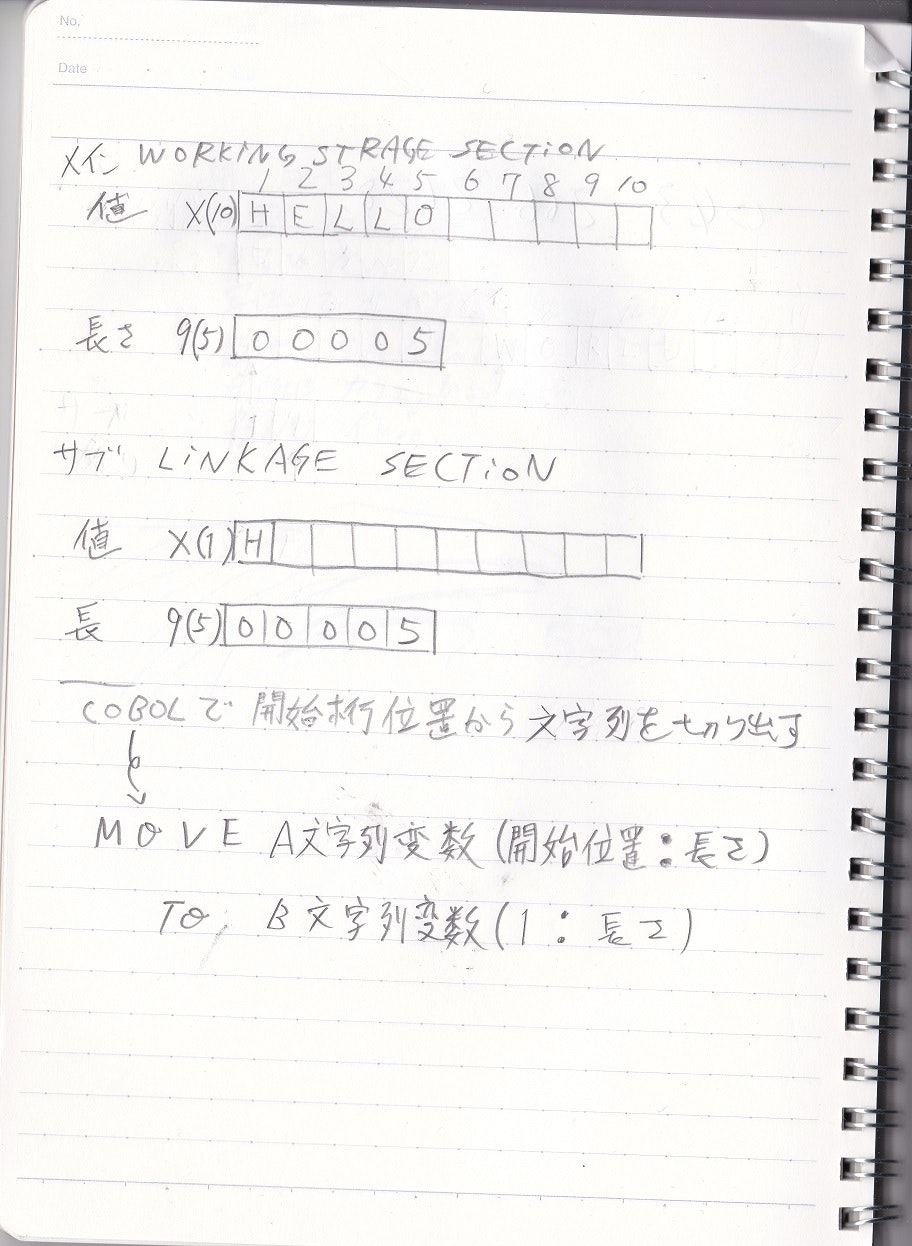 No.
Date
メイン WORKING STRAGE SECTION
1 2 3 4 5 6 7 8 9 10
値 X(10) H E L L O
長さ 9(5) 0 0 0 0 5
サブ LINKAGE SECTION
値 X(1) H
長 9(5) 0 0 0 0 5
COBOLで 開始桁位置から 文字列を切り出す
MOVE A文字列変数(開始位置:長さ)
TO B文字列変数(1:長さ)